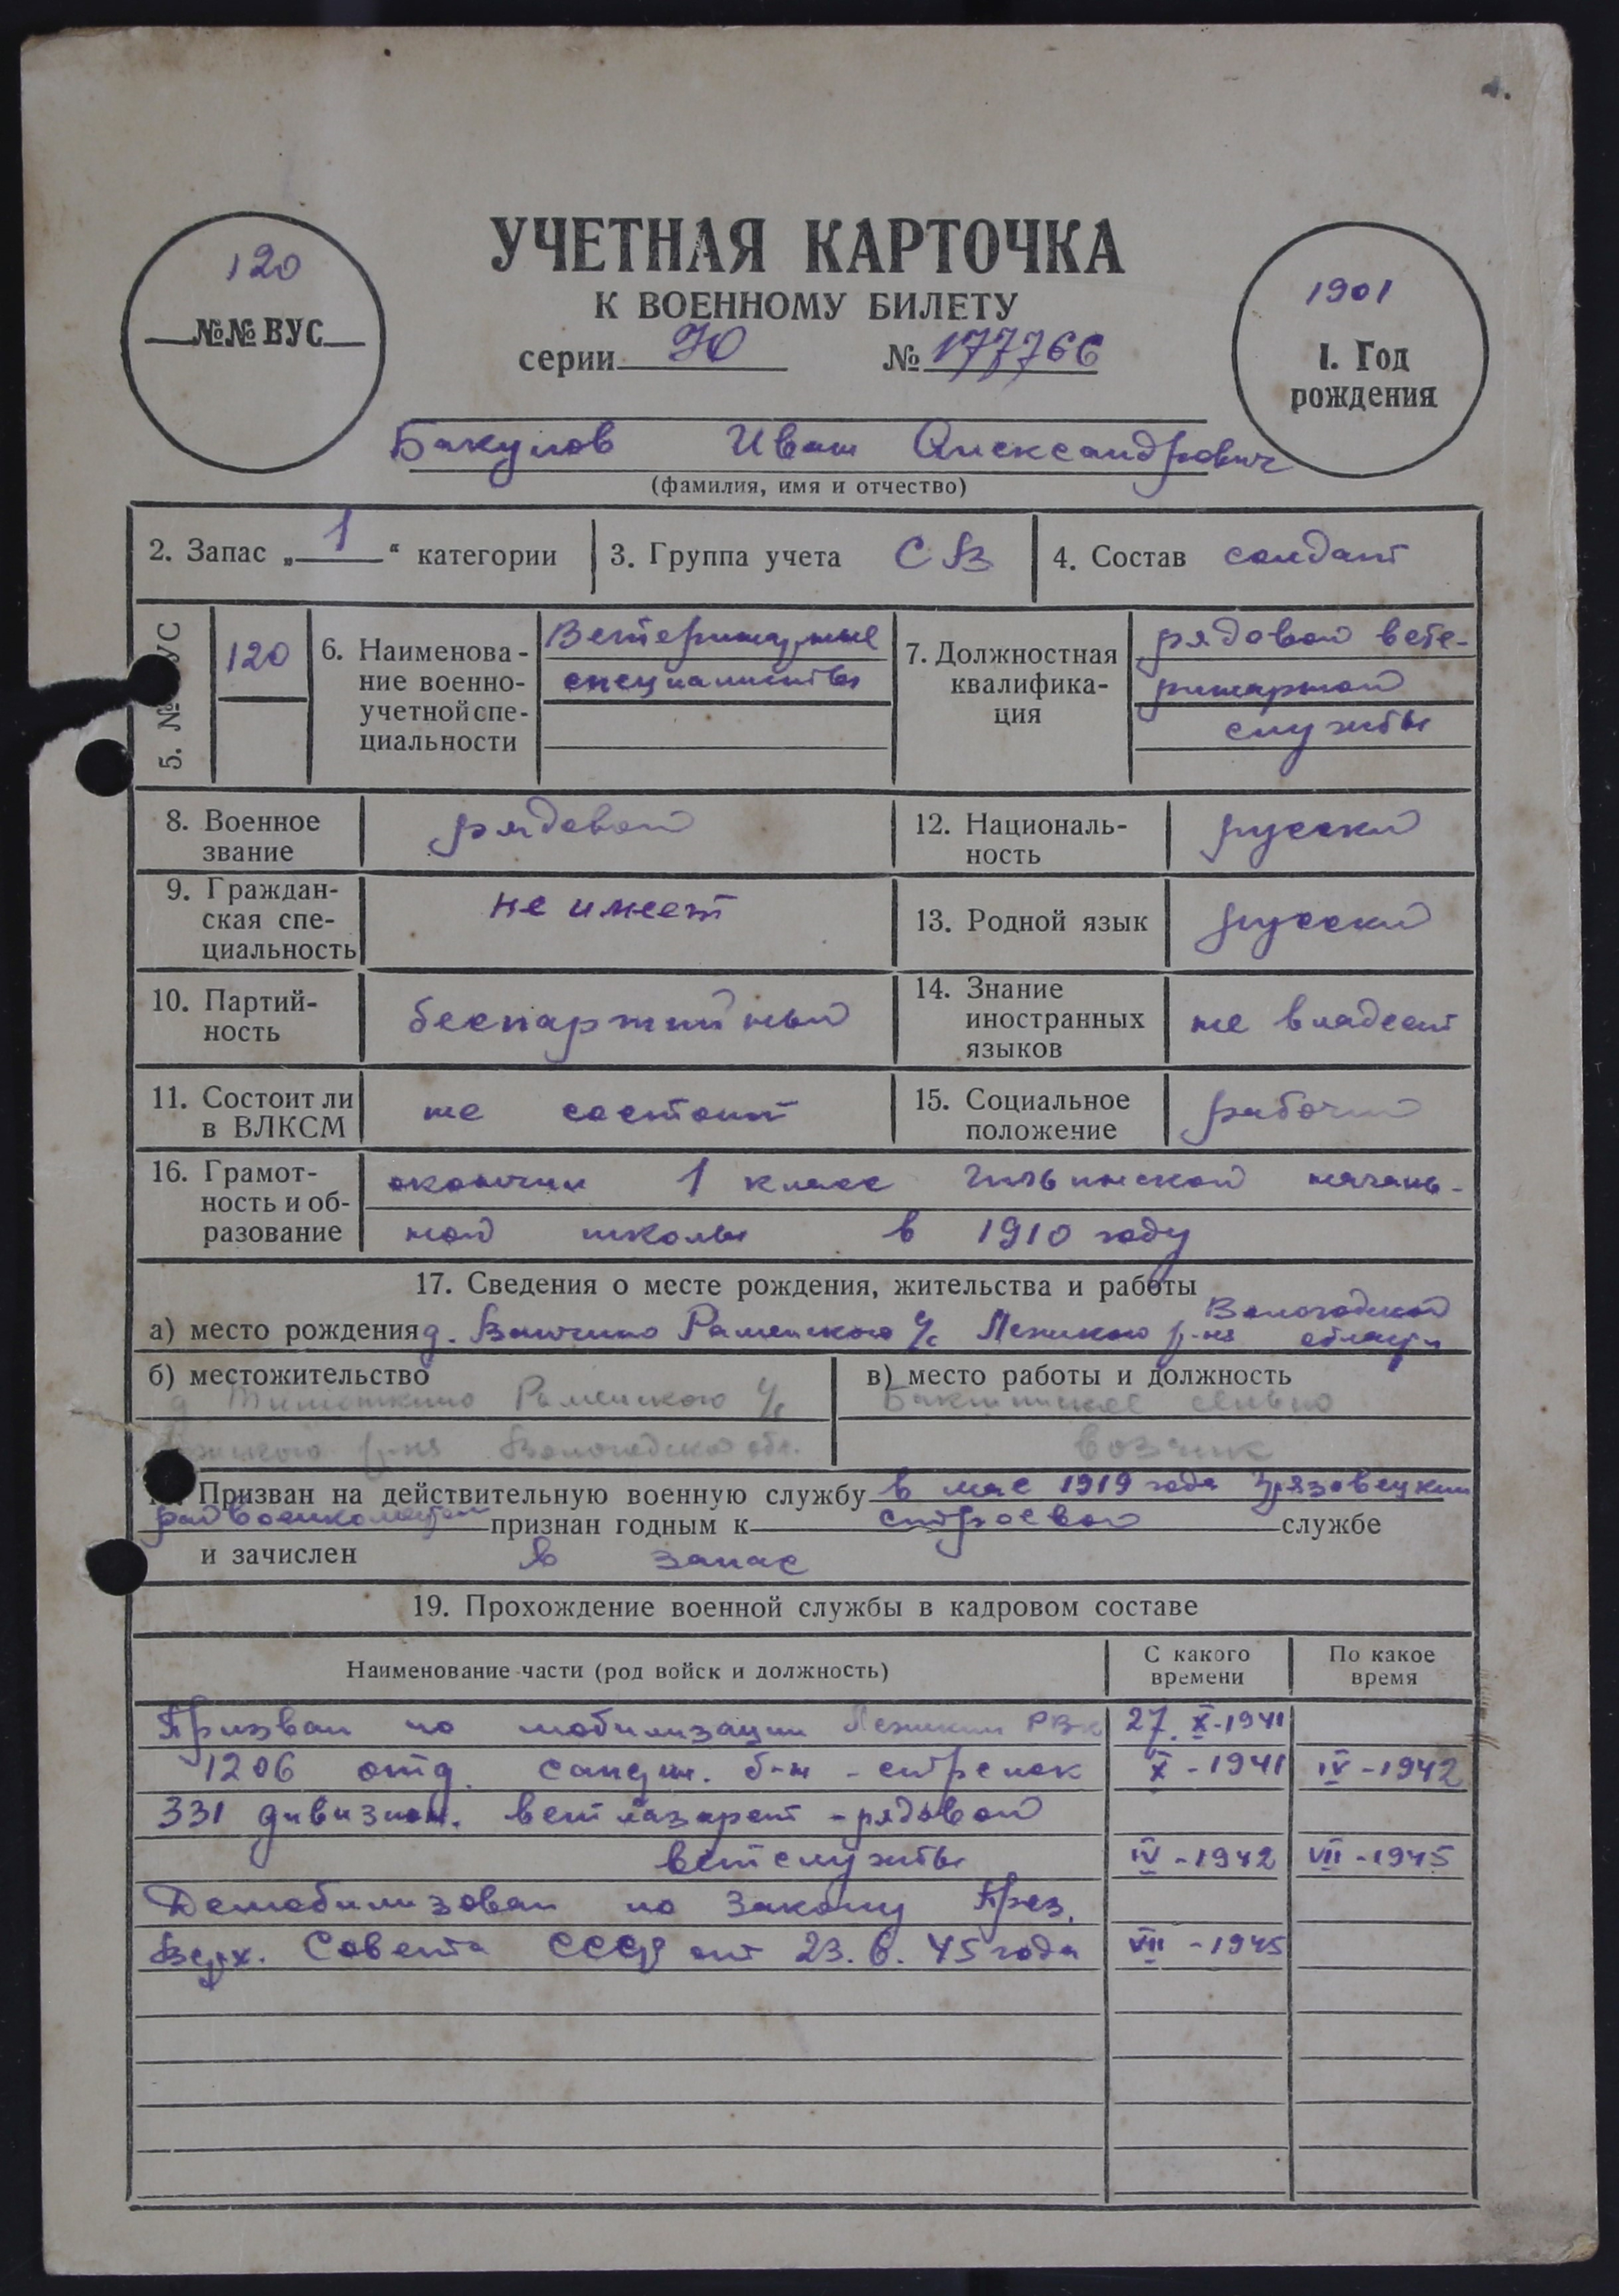 УЧЕТНАЯ КАРТОЧКА
К ВОЕННОМУ БИЛЕТУ
серии Ю № 177766
120
№№ ВУС
1901
1. Год
рождения
Бакулов Иван Александрович
(фамилия, имя и отчество)
2. Запас „1“ категории
3. Группа учета СВ
4. Состав солдат
5. № УС
120
6. Наименова-
ние военно-
учетной спе-
циальности
Ветеринарные
специалисты
7. Должностная
квалифика-
ция
рядовой вете-
ринарной
службы
8. Военное
звание
рядовой
12. Националь-
ность
русский
9. Граждан-
ская спе-
циальность
не имеет
13. Родной язык
русский
10. Партий-
ность
беспартийный
14. Знание
иностранных
языков
не владеет
11. Состоит ли
в ВЛКСМ
не состоит
15. Социальное
положение
рабочий
16. Грамот-
ность и об-
разование
окончил 1 класс началь-
ной школы в 1910 году
17. Сведения о месте рождения, жительства и работы
Вологодской
а) место рождения д. Раменского с/с Лежского р-на области
б) местожительство
д Раменского с/с
р-на Вологодской обл.
в) место работы и должность
сельпо
возчик
Призван на действительную военную службу в мае 1919 года Грязовецким
райвоенкоматом признан годным к строевой службе
и зачислен в запас
19. Прохождение военной службы в кадровом составе
Наименование части (род войск и должность)
С какого
времени
По какое
время
Призван по мобилизации Лежским РВК 27.X-1941
1206 отд. б-н - стрелок X-1941 IV-1942
331 дивизион. ветлазарет - рядовой
ветслужбы IV-1942 VII-1945
Демобилизован по Закону През.
Верх. Совета СССР от 23.6.45 года VII-1945